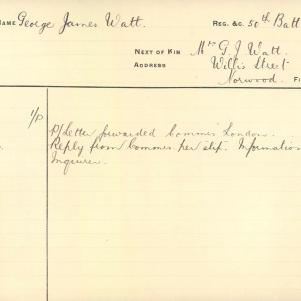 NAME George James Watt. REG. &C. 50th Batt
NEXT OF KIN Mrs G. J. Watt.
ADDRESS Willis Street
Norwood.
1/P P/Letter forwarded Commis London.
Reply from Commis her slip. Information
Inquirer.